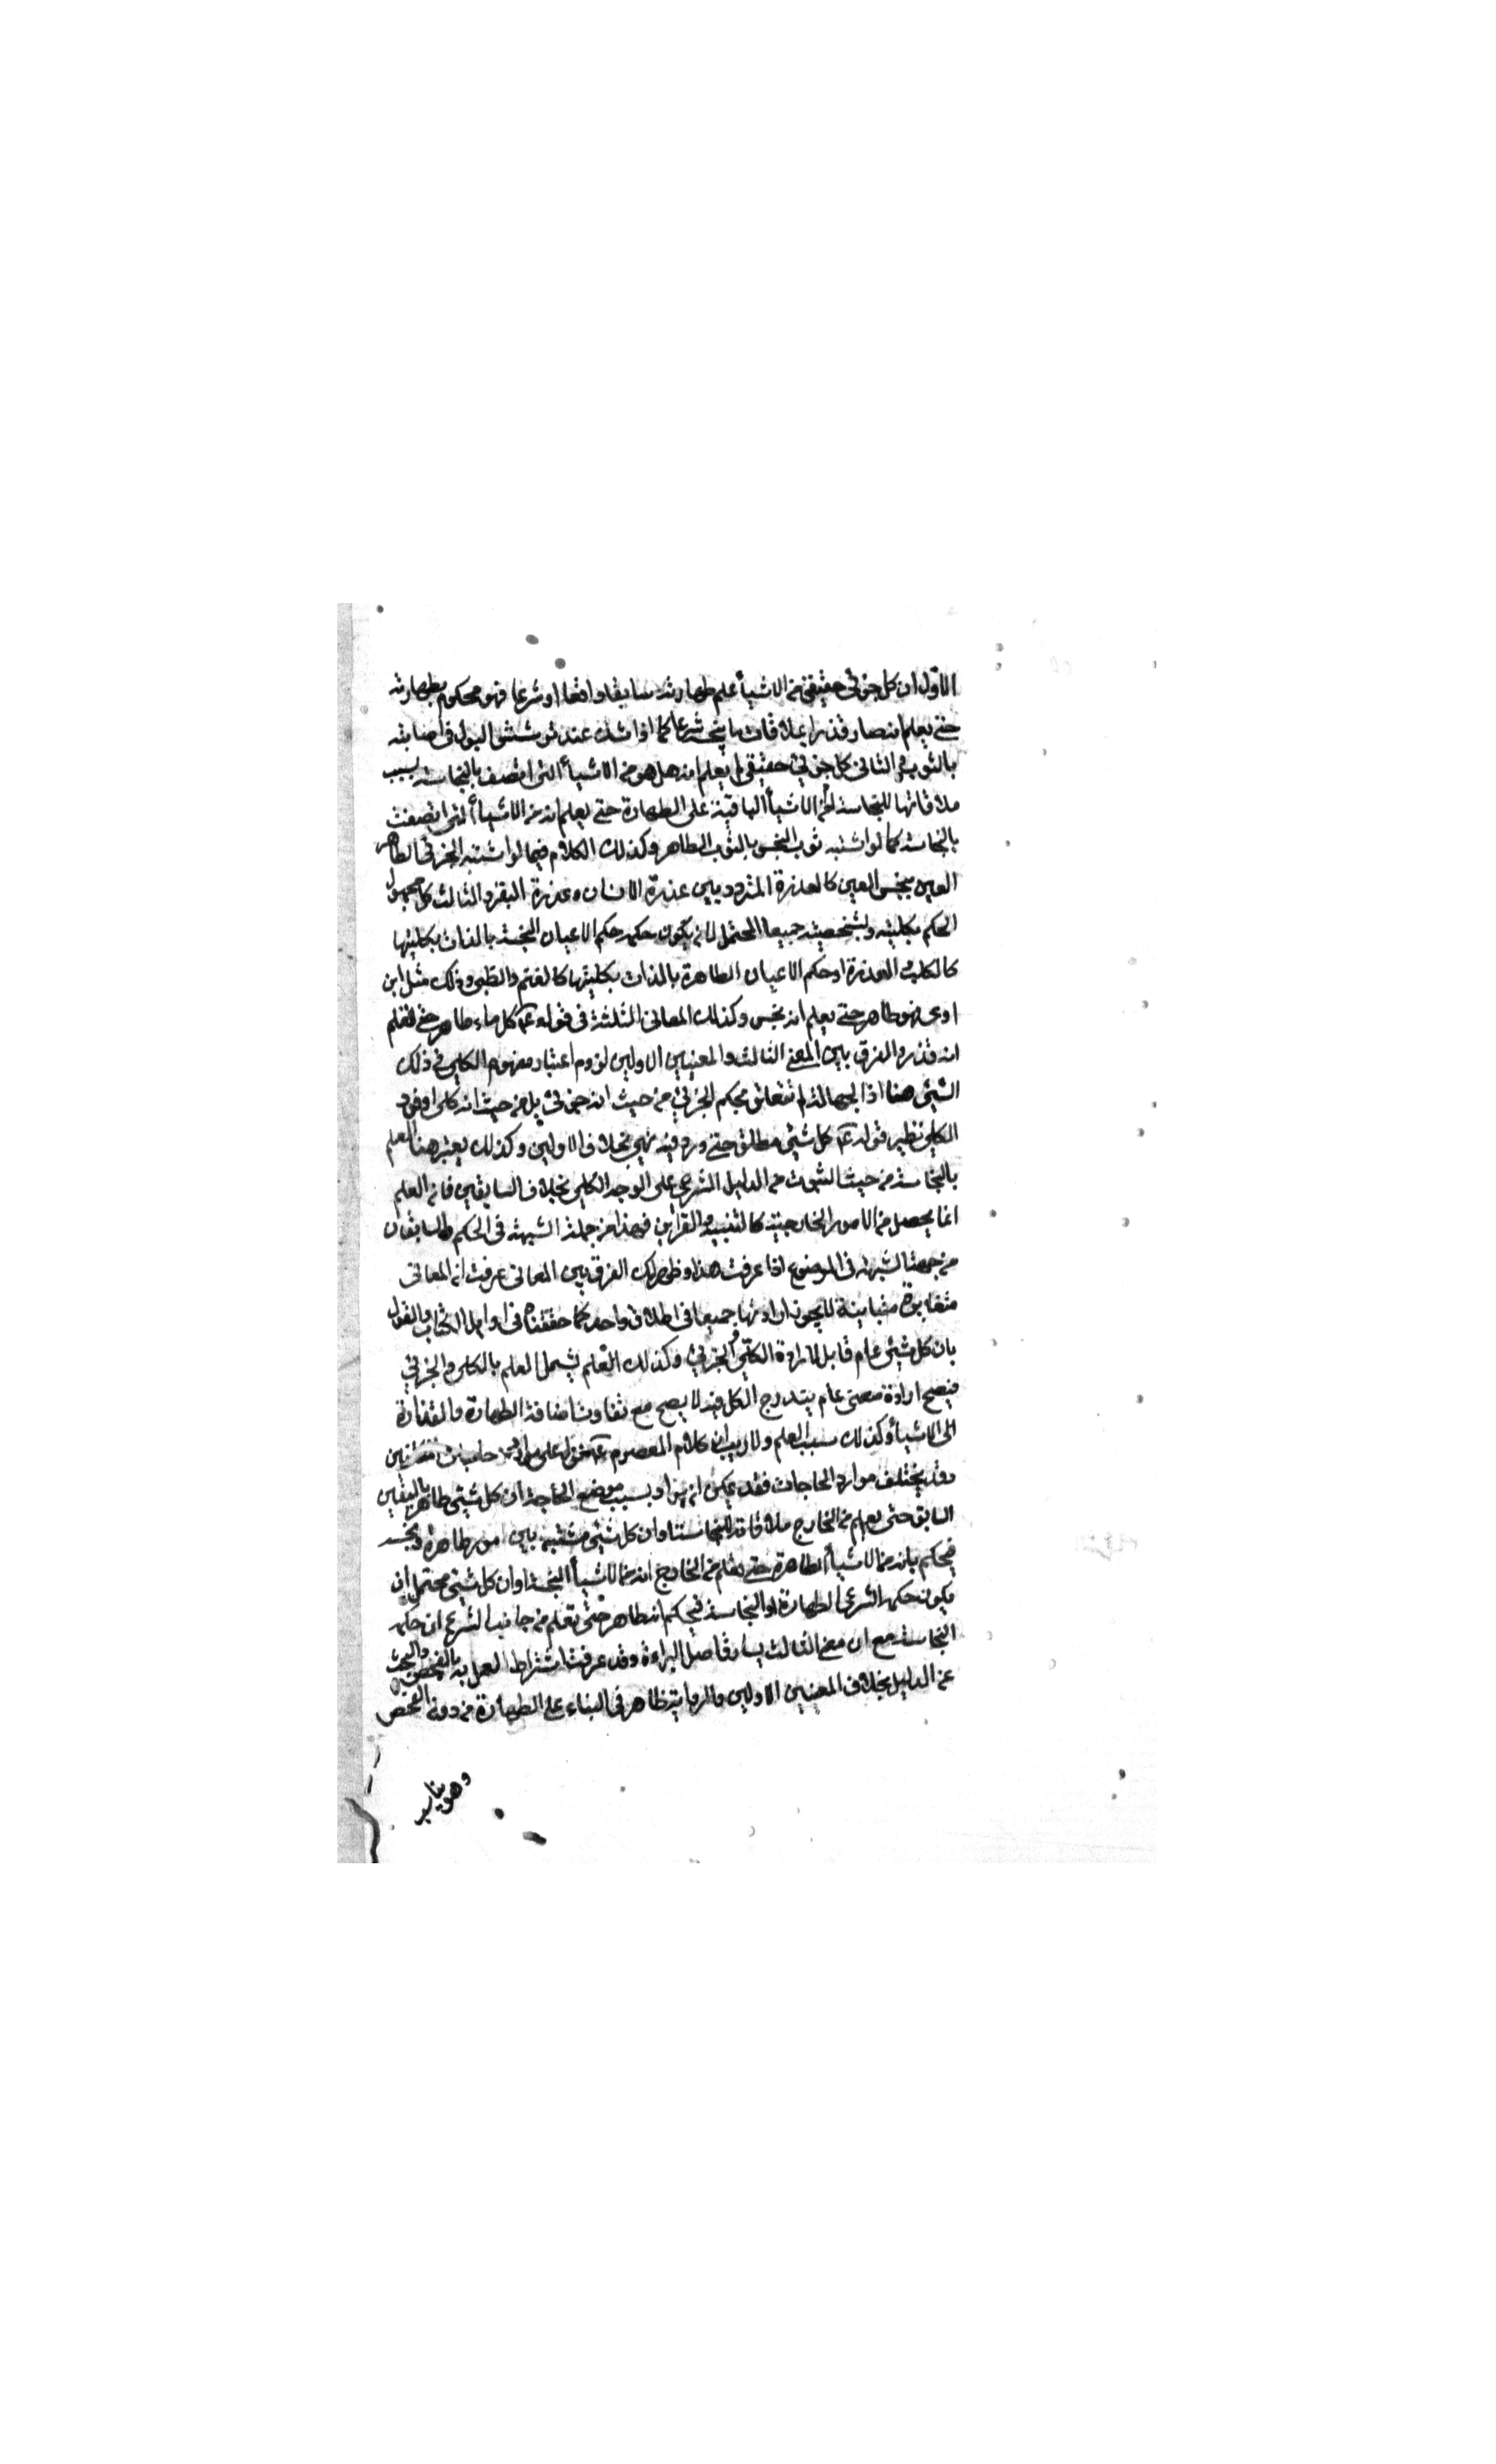 الاول ان كل جزئي حقيقي من الاشيأ علم طهارته سابقا واقعا او شرعا فهو محكوم بطهارته
حتى يعلم انه صار قذرا بملاقات ما ينجسه شرعا كما اذا شك عند ترشش البول في اصابته
بالثوب والثاني كل جزئي حقيقي لم يعلم انه هل هو من الاشيأ التي اتصف بالنجاسة بسبب
ملاقاتها للنجاسة او من الاشيأ الباقية على الطهارة حتى يعلم انه من الاشيأ التي اتصفت
بالنجاسة كما لو اشتبه ثوب النجس بالثوب الطاهر وكذلك الكلام فيما لو اشتبه الجزئي الطاهر
العين بنجس العين كالعذرة المترددة بين عذرة الانسان وعذرة البقر والثالث كل مجهول
الحكم بكليته وبشخصيته جميعا المحتمل لان يكون حكمه حكم الاعيان النجسة بالذات بكليتها
كالكلب والعذرة او حكم الاعيان الطاهرة بالذات بكليتها كالغنم والظبي وذلك مثل ابن
اوى فهو طاهر حتى يعلم انه نجس وكذلك المعاني الثلثة في قوله ع كل ماء طاهر حتى تعلم
انه قذر والفرق بين المعنى الثالث والمعنيين الاولين لزوم اعتبار مفهوم الكلي في ذلك
الشيئ هنا اذ الجهالة لم تتعلق بحكم الجزئي من حيث انه جزئي بل من حيث انه كلي او فرد
الكلي نظير قوله ع كل شيئ مطلق حتى ورد فيه نهي بخلاف الاولين وكذلك يعتبر هنا العلم
بالنجاسة من حيث الثبوت من الدليل الشرعي على الوجه الكلي بخلاف السابقين فان العلم
انما يحصل من الامور الخارجية كالبينة والقراين فهذا من جملة الشبهة في الحكم والسابقان
من جهة الشبهة في الموضوع اذا عرفت هذا وظهر لك الفرق بين المعاني عرفت ان المعاني
متغايرة متباينة لا يجوز ارادتها جميعا في اطلاق واحد كما حققناه في اوايل الكتاب والقول
بان كل شيئ عام قابل لارادة الكلي والجزئي وكذلك العلم يشمل العلم بالكلي والجزئي
فيصح ارادة معنى عام يندرج الكل فيه لا يصح مع تفاوت اضافة الطهارة والقذارة
الى الاشيأ وكذلك سبب العلم ولا ريب ان كلام المعصوم ع
وقد يختلف موارد الحاجات فقد يمكن ان يراد بسبب موضع الحاجة ان كل شيئ طاهر باليقين
السابق حتى يعلم من الخارج ملاقاته للنجاسة او ان كل شيئ مشتبه بين امور طاهرة ونجسة
فيحكم بانه من الاشيأ الطاهرة حتى تعلم من الخارج انه من الاشيأ النجسة او ان كل شيئ محتمل ان
يكون حكمه الشرعي الطهارة او النجاسة فيحكم انه طاهر حتى تعلم من جانب الشرع ان حكمه
النجاسة مع ان معنى الثالث يساوق اصل البراءة وقد عرفت اشتراط العمل به بالفحص والبحث
عن الدليل بخلاف المعنيين الاولين والرواية ظاهر في البناء على الطهارة من دون الفحص
وهو يناسب